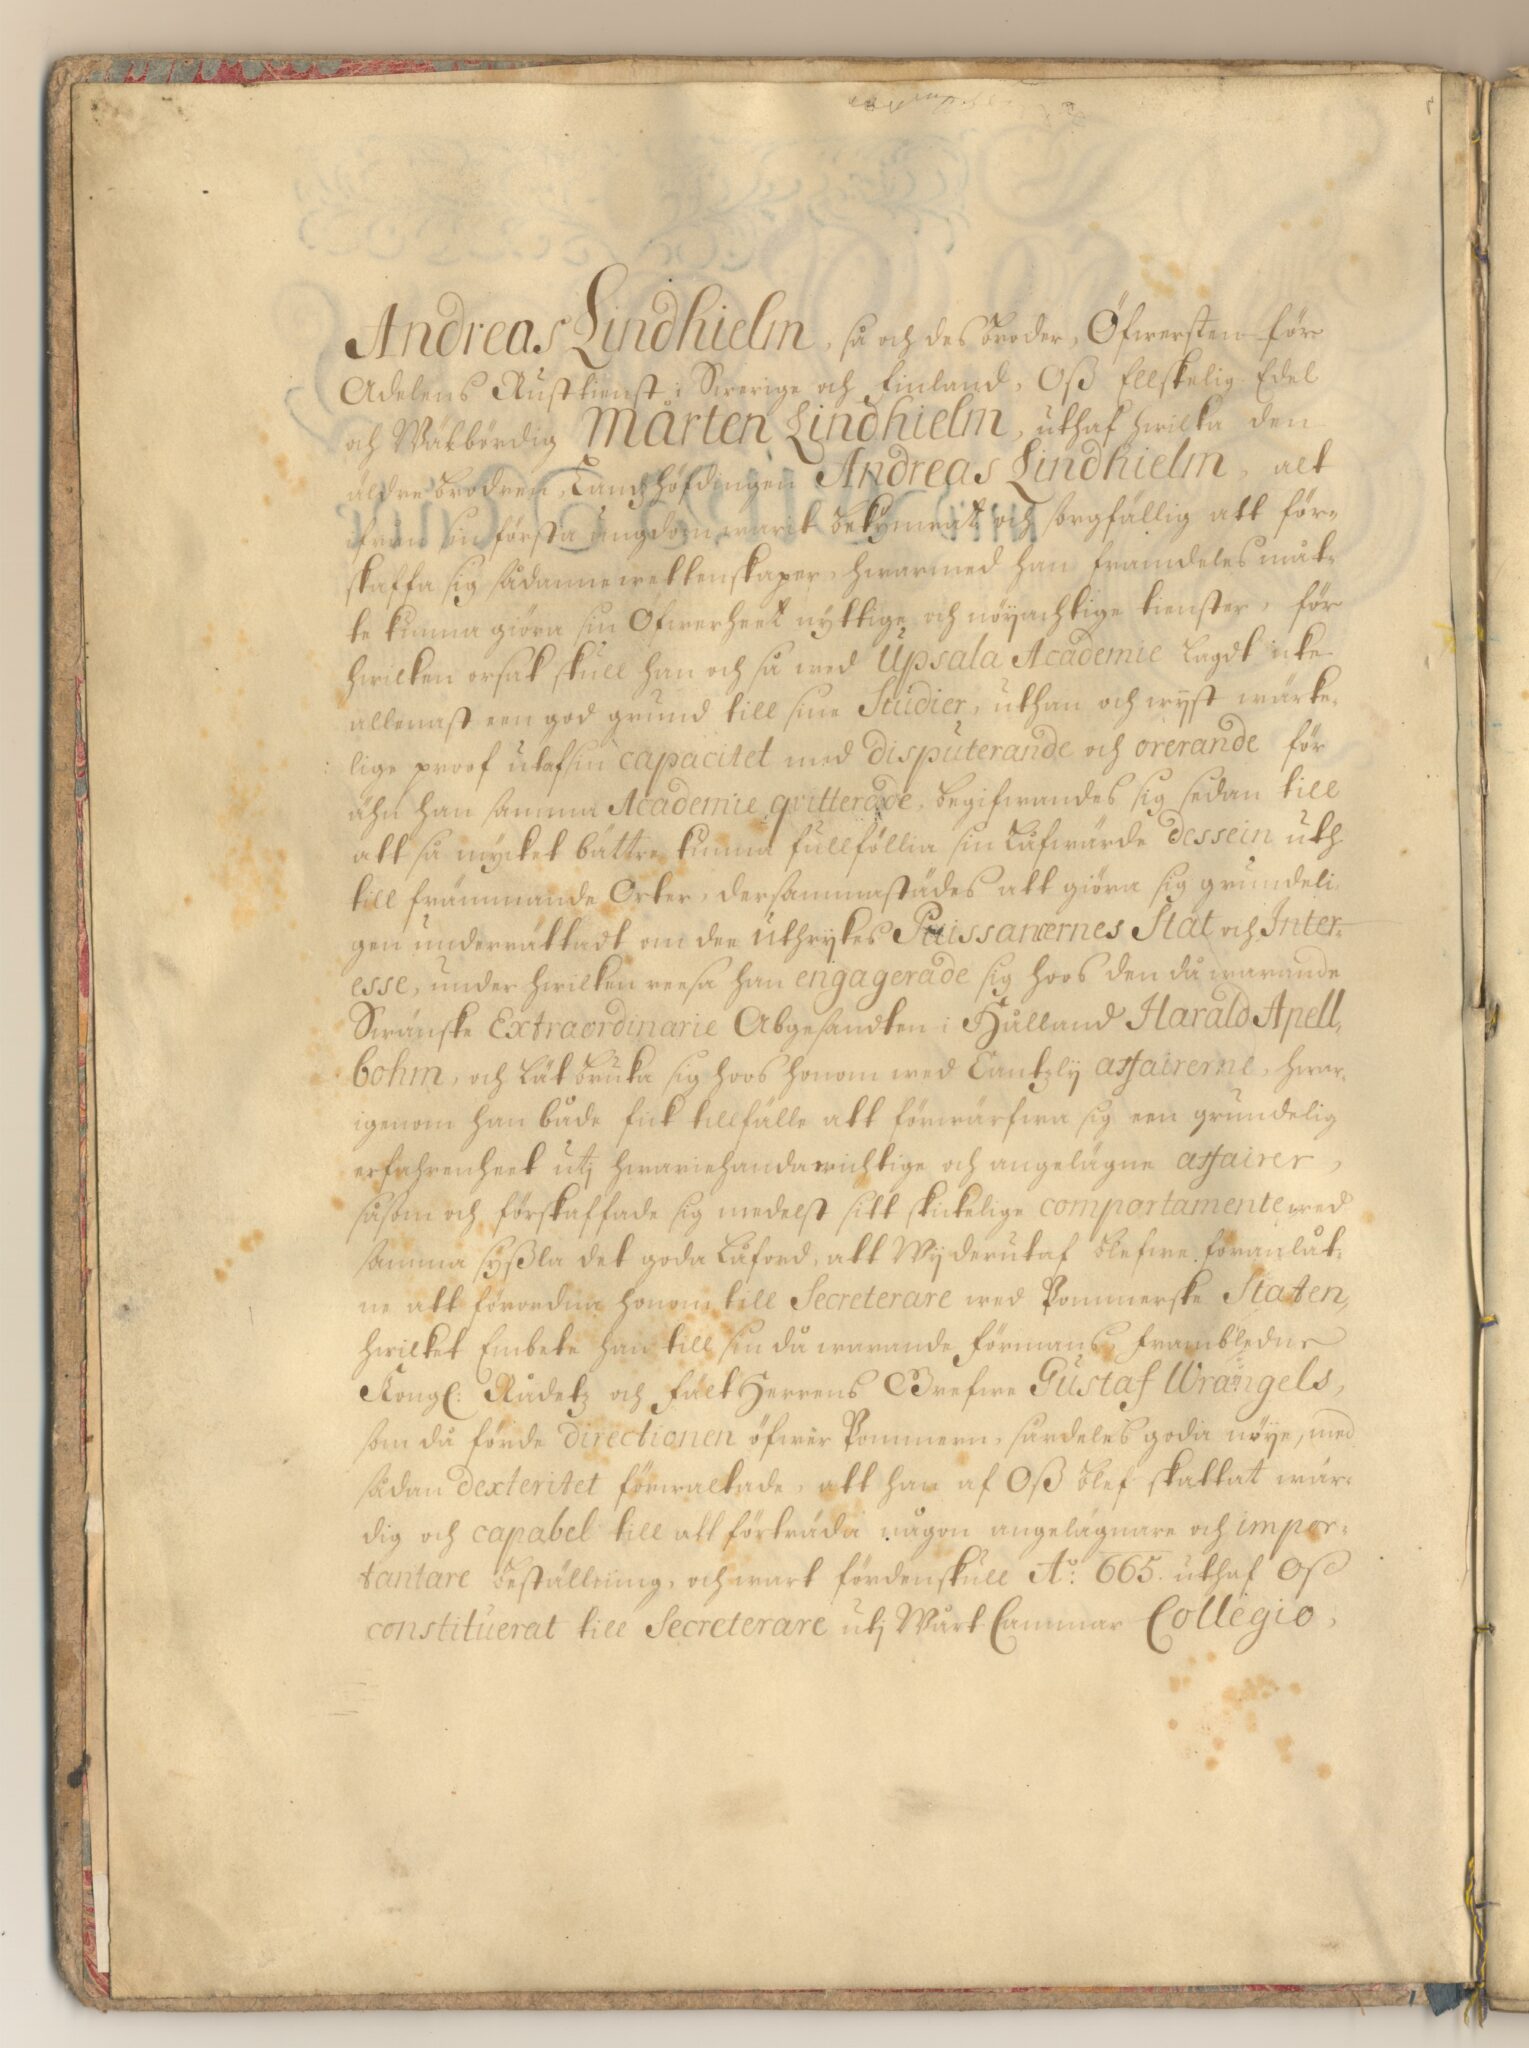 Andreas Lindhielm, så och des broder, Öfwersten för
Adelens Rusttienst i Swerige och Finland, Oß Ellskelig Edel
och Wälbördig Mårten Lindhielm, uthaf hwilka den
äldre brodren, Landzhöfdingen Andreas Lindhielm, alt
ifrån sin första ungdom warit bekymrat och sorgfällig att för=
skaffa sig sådanne wettenskaper, hwarmed han framdeles måt=
te kunna giöra sin Öfwerheet nyttige och nöyachtige tienster, för
hwilken orsak skull han och så wed Upsala Academie lagdt icke
allenast een god grund till sine Studier, uthan och wyst wärke=
lige proof utaf sin capacitet med disputerande och orerande för
ähn han samma Academie qvitterade, begifwandes sig sedan till
att så mycket bättre kunna fullföllia sin låfwärde dessein uth
till främmande Orter, dersammastädes att giöra sig grundeli=
gen underrättadt om den uthrykes Puissancernes Stat och Inter=
esse, under hwilken reesa han engagerade sig hoos den då warande
Swänske Extraordinarie Abgesandten i Hålland Harald Apell=
bohm, och lät bruka sig hoos honom wed Cantzly affairerne, hwar=
igenom han både fick tillfälle att förwärfwa sig een grundelig
erfahrenheet utj hwariehanda wichtige och angelägne affairer,
såsom och förskaffade sig medelst sitt skickelige comportamente wed
samma syßla det goda låford, att Wij derutaf blefwe föranlåt=
ne att förordna honom till Secreterare wed Pommerske Staten,
hwilket Embete han till sin då warande förmans, framledne
Kongl: Rådetz och FältHerrens Grefwe Gustaf Wrangels,
som då förde directionen öfwer Pommern, särdeles goda nöye, med
sådan dexteritet förwaltade, att han af Oß blef skattat wär=
dig och capabel till att förträda någon angelägnare och impor=
tantare beställning, och wart fördenskull A:o 665. uthaf Oß
constituerat till Secreterare utj Wårt Cammar Collegio,